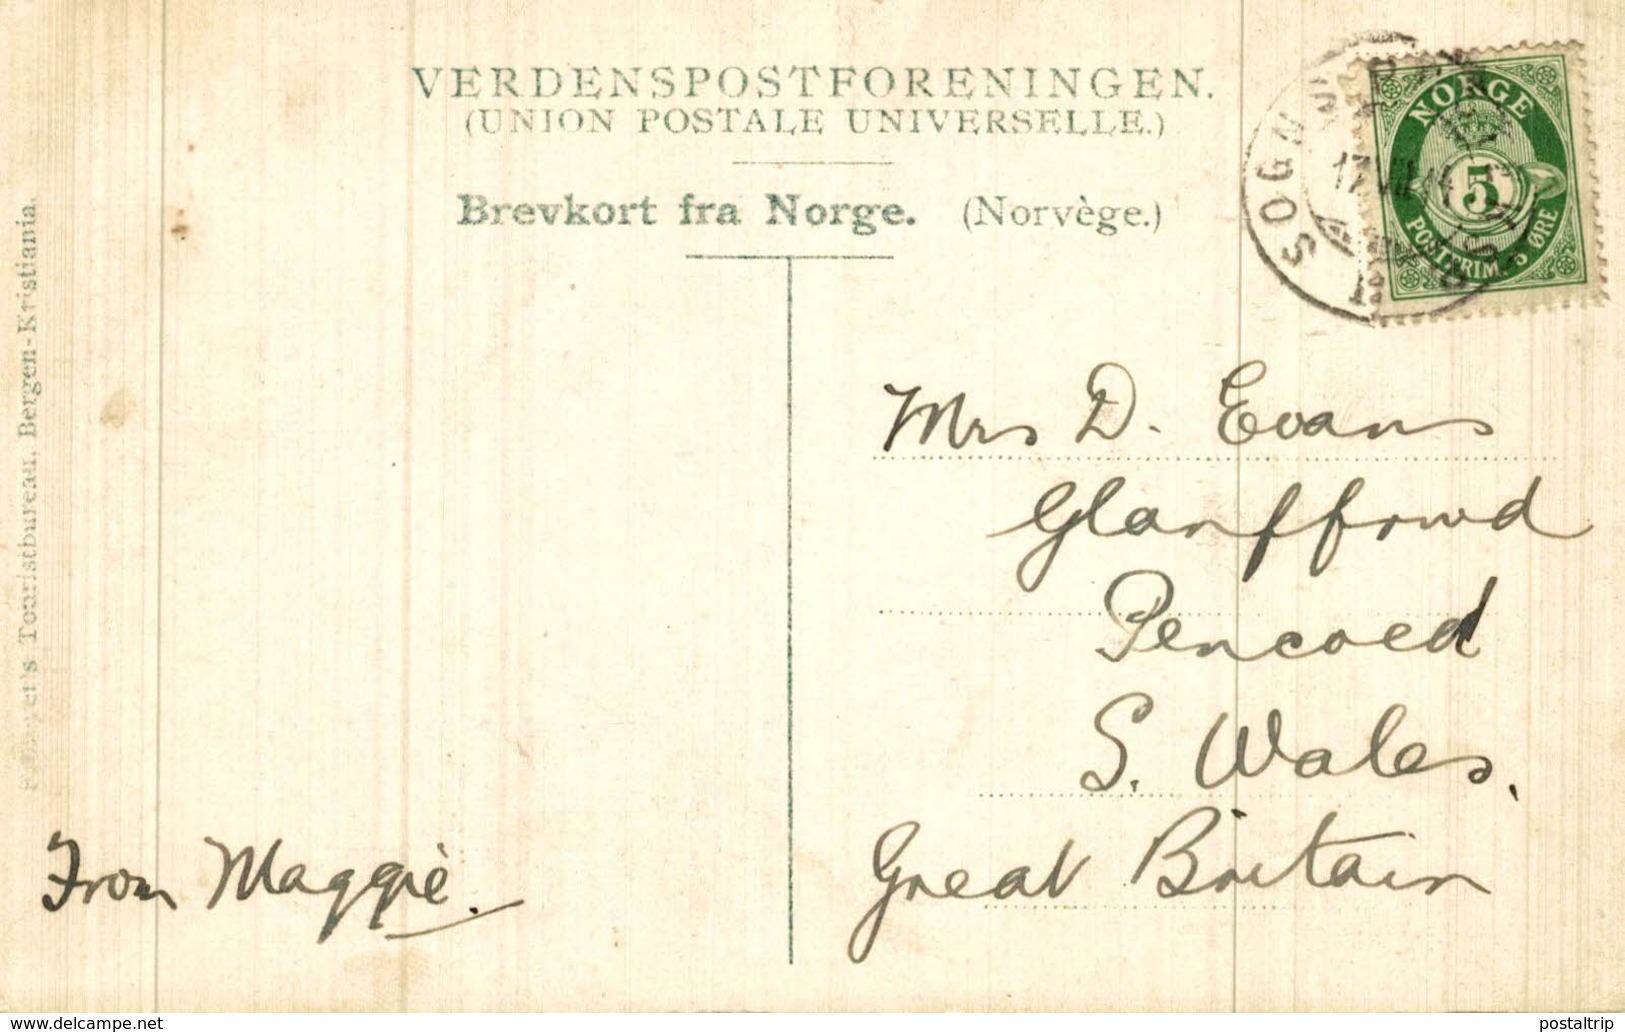 VERDENSPOSTFORENINGEN.
(UNION POSTALE UNIVERSELLE.)
Brevkort fra Norge. (Norvège.)
NORGE
5
POSTFRIM. 5 ØRE
SOGN
17 VII
Mrs D. Evans
Glanffrwd
Pencoed
S. Wales.
Great Britain
From Maggie.
Touristbureau, Bergen-Kristiania.
www.delcampe.net
postaltrip